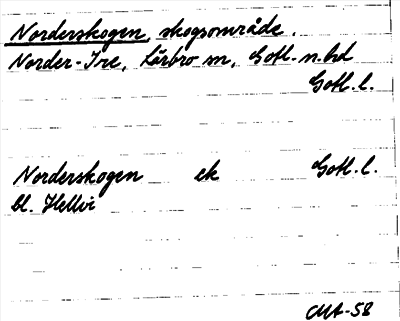 Norderskogen, skogsområde.
Norder-Ire, Lärbro sn, Gotl. n. hd
Gotl. l.
Norderskogen ek Gotl. l.
bl. Hellvi
CMA-58